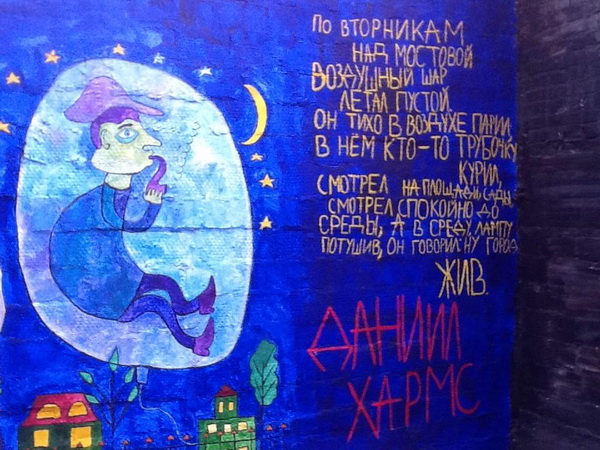 ПО ВТОРНИКАМ
НАД МОСТОВОЙ
ВОЗДУШНЫЙ ШАР
ЛЕТАЛ ПУСТОЙ.
ОН ТИХО В ВОЗДУХЕ ПАРИЛ,
В НЁМ КТО-ТО ТРУБОЧКУ
КУРИЛ,
СМОТРЕЛ НА ПЛОЩАДИ, САДЫ,
СМОТРЕЛ СПОКОЙНО ДО
СРЕДЫ, А В СРЕДУ, ЛАМПУ
ПОТУШИВ, ОН ГОВОРИЛ: НУ ГОРОД
ЖИВ.
ДАНИИЛ
ХАРМС